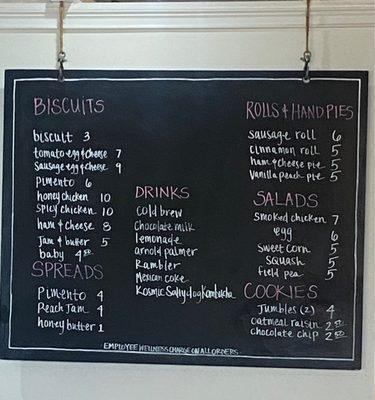 BISCUITS
biscuit 3
tomato egg & cheese 7
Sausage egg & cheese 9
Pimento 6
honey chicken 10
spicy chicken 10
ham & cheese 8
Jam & butter 5
baby 4.50
SPREADS
Pimento 4
Peach Jam 4
honey butter 1
DRINKS
Cold brew
Chocolate milk
lemonade
arnold palmer
Rambler
Mexican coke
Kosmic Salty dog Kombucha
ROLLS & HAND PIES
Sausage roll 6
Cinnamon roll 5
ham & cheese pie 5
Vanilla peach pie 5
SALADS
Smoked chicken 7
egg 6
Sweet corn 5
Squash 5
field pea 5
COOKIES
Jumbles (2) 4
Oatmeal raisin 2.50
Chocolate chip 2.50
EMPLOYEE WELLNESS CHARGE ON ALL ORDERS